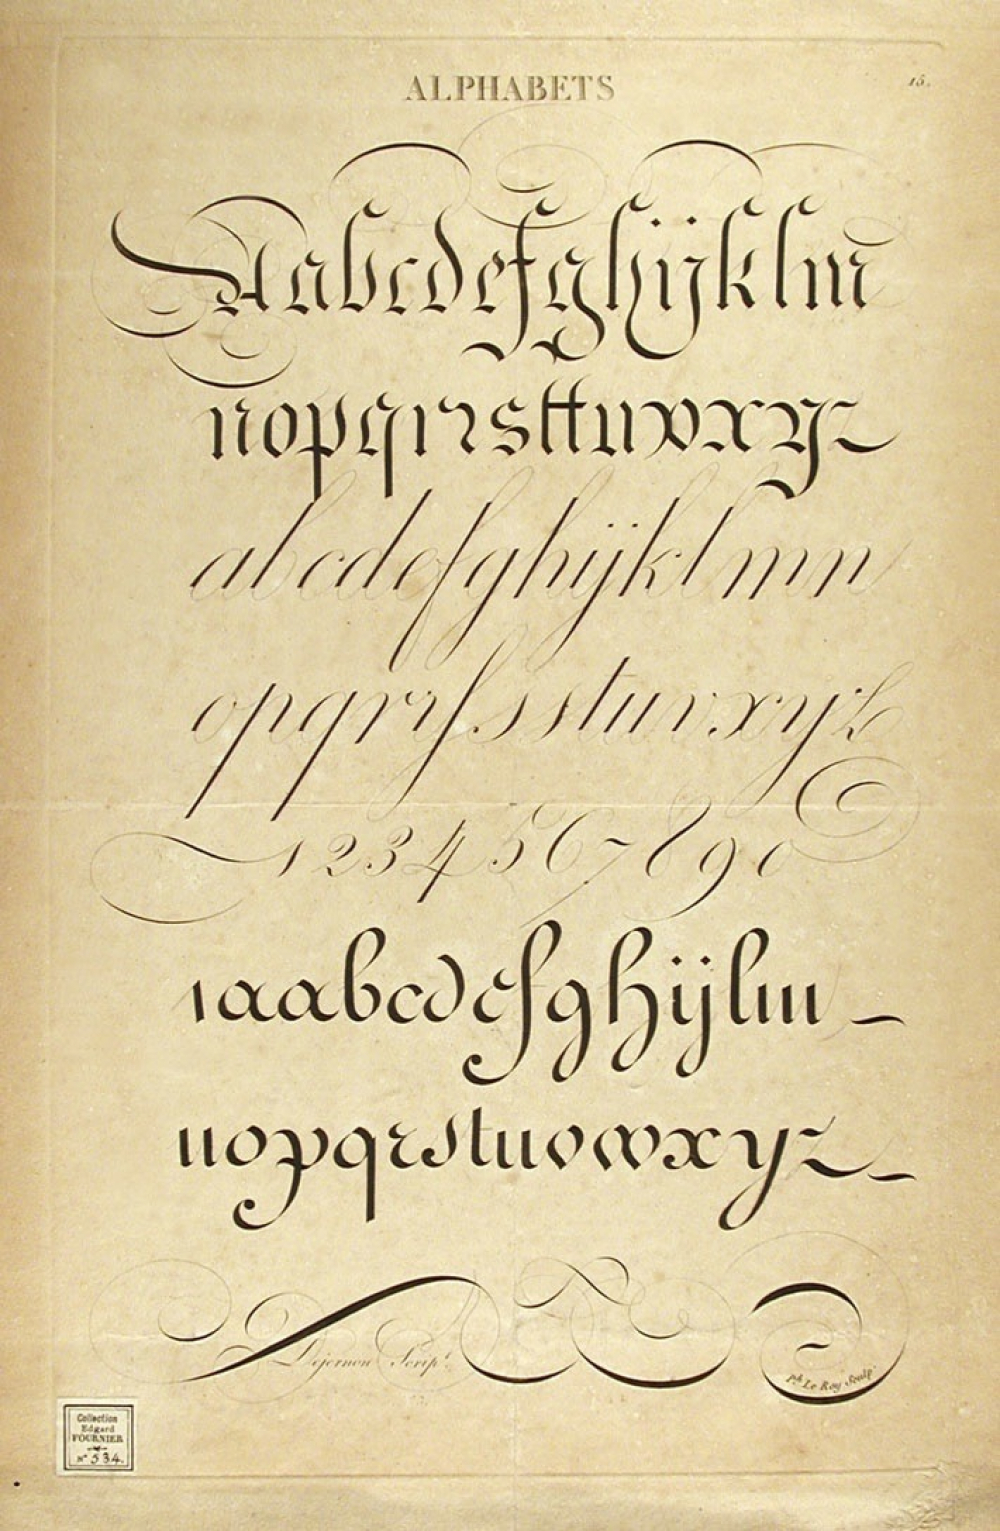 ALPHABETS
15.
Aabcdefghijklm
nopqrrsttuvxyz
abcdefghijklmn
opqrrſsstuvxyz
1234567890
ıaabcdefghijlm
nopqrstuvwxyz
Dejernon Scrip.t
Ph. Le Roy Sculp.t
Collection
Edgard
FOURNIER
N° 534.